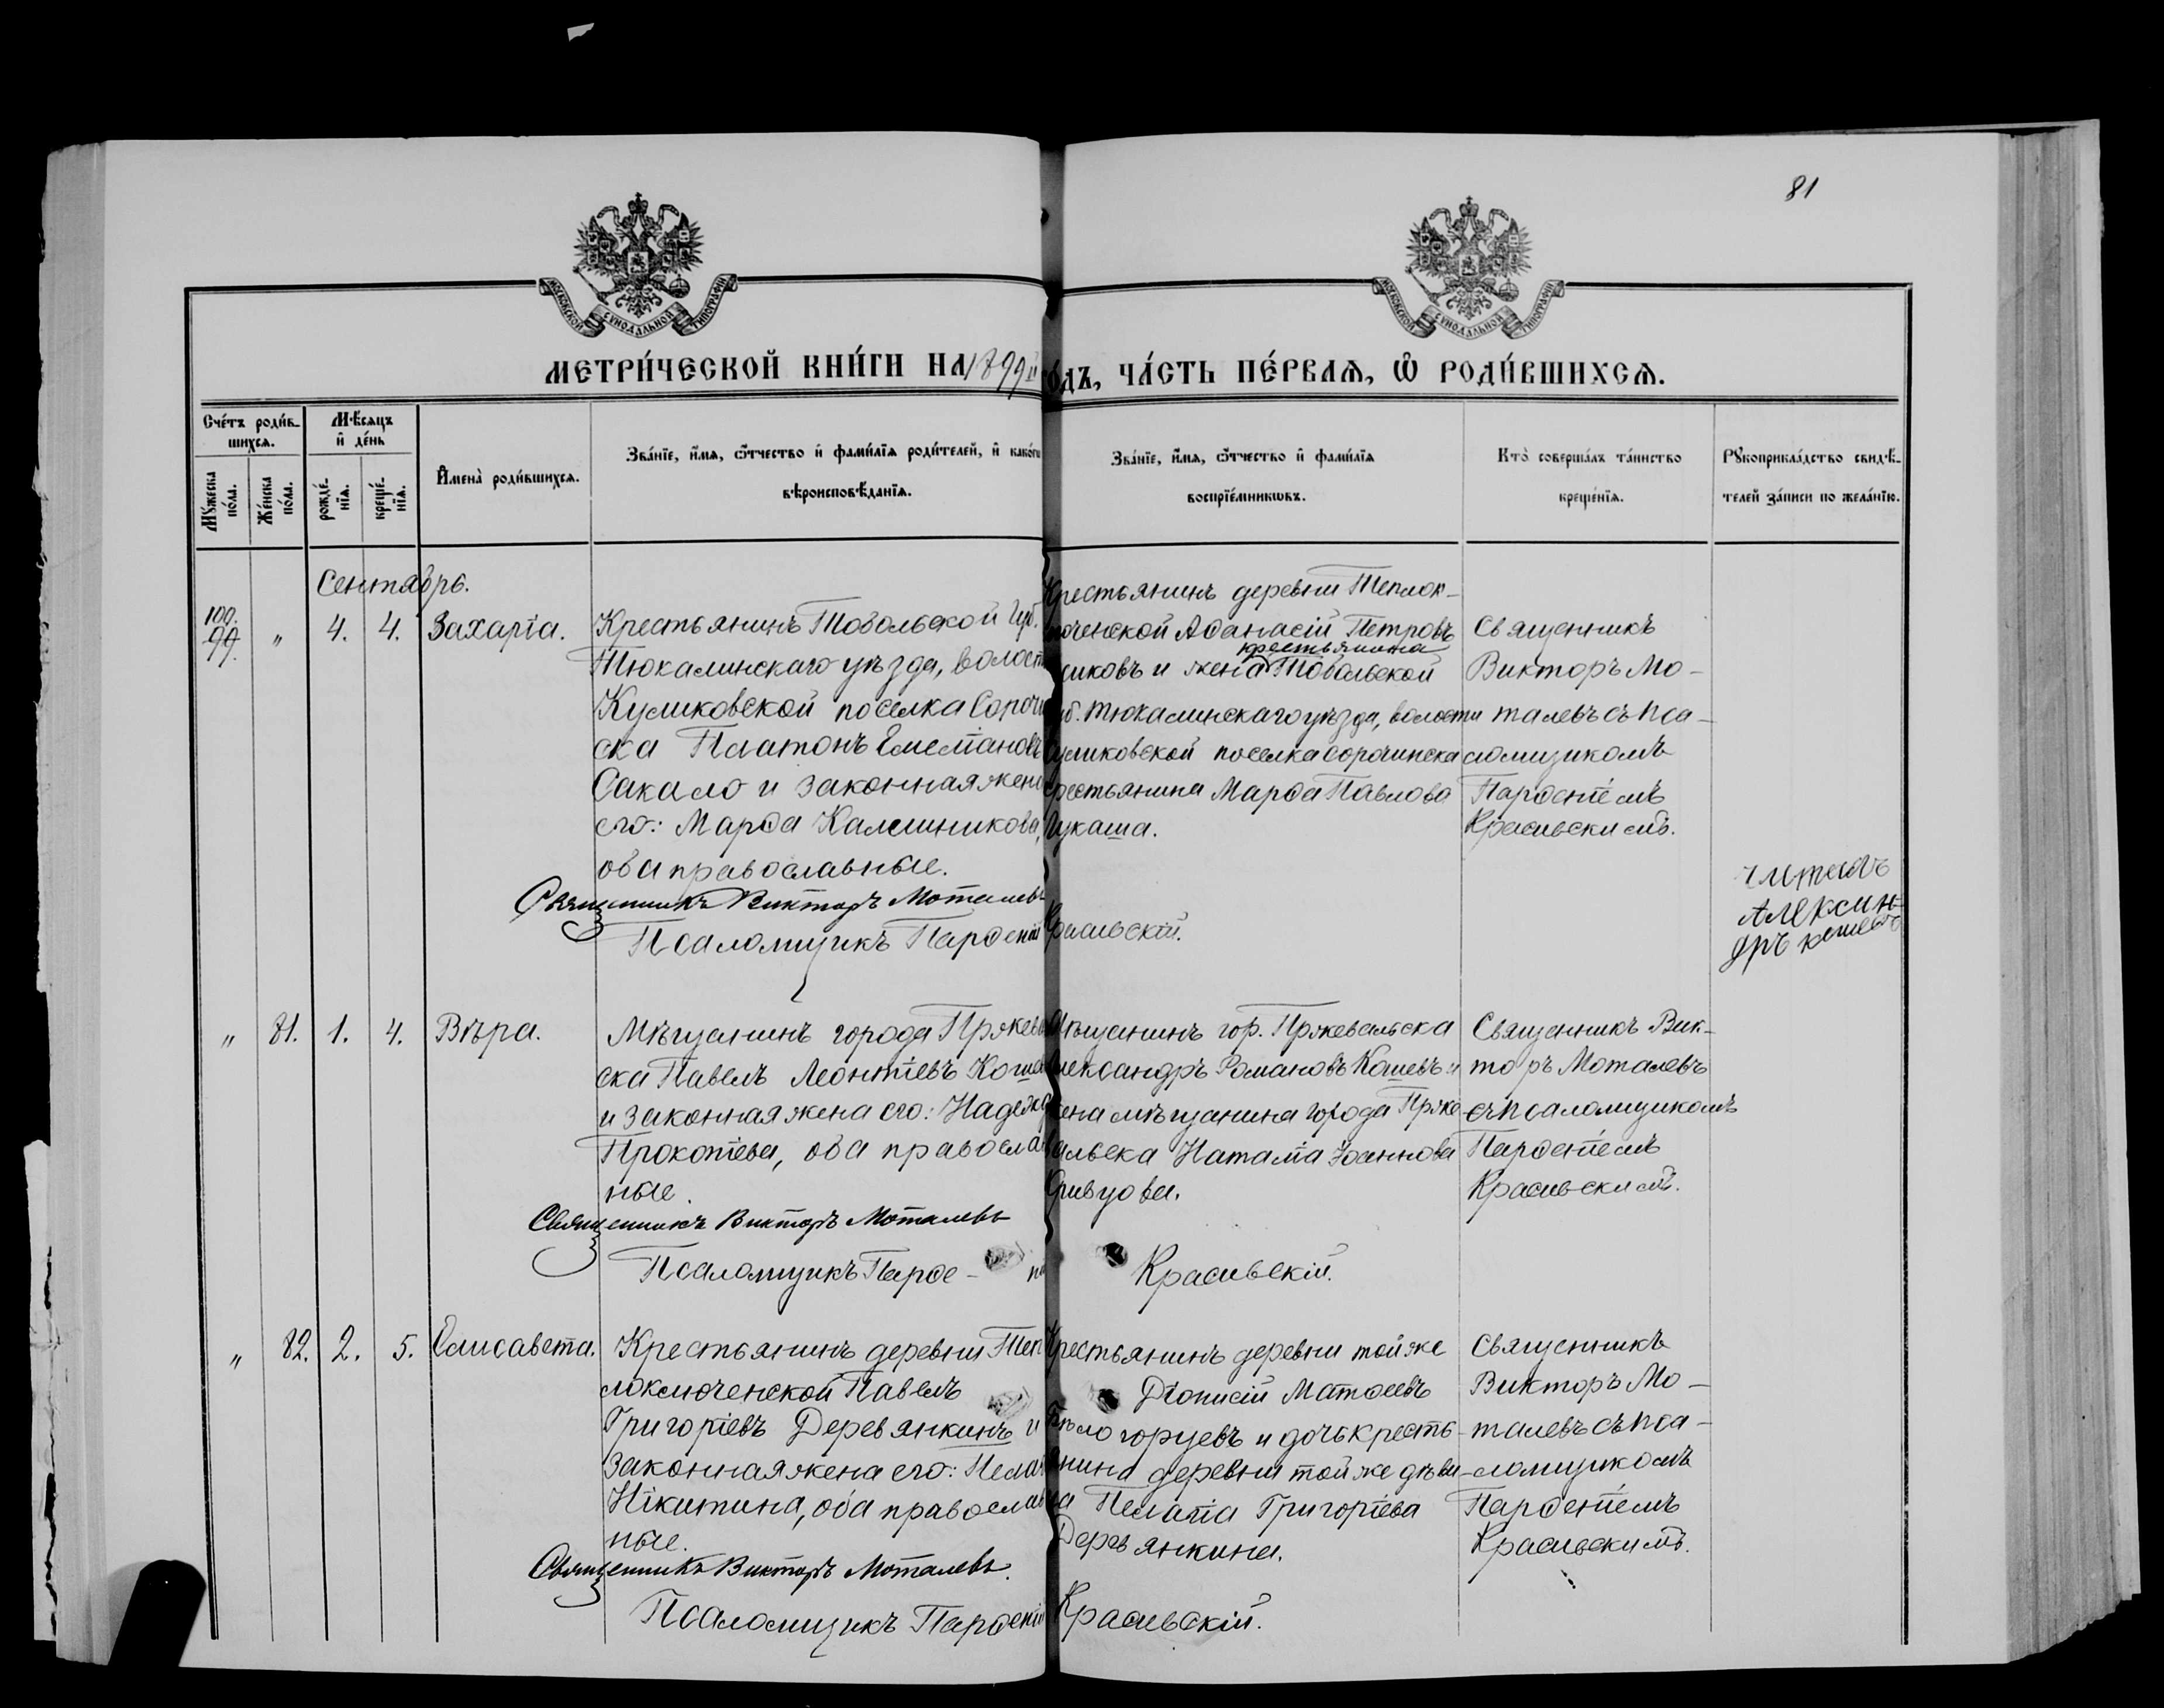 81
МОСКОВСКОЙ СѴНОДАЛЬНОЙ ТИПОГРАФІИ
МОСКОВСКОЙ СѴНОДАЛЬНОЙ ТИПОГРАФІИ
МЕТРИ́ЧЕСКОЙ КНИ́ГИ НА 1899й
ГО́ДЪ, ЧА́СТЬ ПЕ́РВАѦ, Ѡ҆ РОДИ́ВШИХСѦ.
Сче́тъ роди́в-
шихсѧ.
Мꙋ́жеска по́ла.
Же́нска по́ла.
Мѣ́сѧцъ
и҆ де́нь
рожде́-нїѧ.
креще́-нїѧ.
И҆мена̀ роди́вшихсѧ.
Зва́нїе, и҆́мѧ, ѻ҆́тчество и҆ фами́лїѧ роди́телей, и҆ како́гѡ
вѣроисповѣ́данїѧ.
Зва́нїе, и҆́мѧ, ѻ҆́тчество и҆ фами́лїѧ
воспрїе́мникѡвъ.
Кто̀ соверша́лъ та́инство
креще́нїѧ.
Рꙋкоприкла́дство свидѣ́-
телей за́писи по жела́нїю.
Сентябрь.
100.
99.
"
4.
4.
Захарія.
Крестьянинъ Тобольской Губ.
Тюкалинскаго уѣзда, волост
Куликовской поселка Сорочи
ска Платонъ Емельяновъ
Сакало и законная жена
его: Марѳа Калинникова,
оба православные.
Священникъ Викторъ Моталевъ
Псаломщикъ Парѳеній Красивскій.
Крестьянинъ деревни Теплок-
люченской Аѳанасій Петровъ
крестьянина
иковъ и жена Тобольской
Губ. Тюкалинскаго уѣзда, волости
Куликовской поселка Сорочинска
крестьянина Марѳа Павлова
Лукаша.
Священникъ
Викторъ Мо-
талевъ съ пса-
ломщикомъ
Парѳеніемъ
Красивскимъ.
читалъ
Алексан-
дръ кошевъ
"
81.
1.
4.
Вѣра.
Мѣщанинъ города Пржева
ска Павелъ Леонтіевъ Коше
и законная жена его: Надежда
Прокопіева, оба правосла
ные.
Священникъ Викторъ Моталевъ
Псаломщикъ Парѳе- ній Красивскій.
Мѣщанинъ гор. Пржевальска
Александръ Романовъ Кошевъ и
жена мѣщанина города Прже-
вальска Наталія Іоаннова
Кривцова.
Священникъ Вик-
торъ Моталевъ
съ псаломщикомъ
Парѳеніемъ
Красивскимъ.
"
82.
2.
5.
Елисавета.
Крестьянинъ деревни Теп
лоключенской Павелъ
Григоріевъ Деревянкинъ и
законная жена его: Пелаг
Никитина, оба православ
ные.
Священникъ Викторъ Моталевъ.
Псаломщикъ Парѳеній Красивскій.
Крестьянинъ деревни той же
Діонисій Матѳеевъ
Бѣлогорцевъ и дочь кресть-
янина деревни той же дѣви-
ца Пелагія Григоріева
Деревянкина.
Священникъ
Викторъ Мо-
талевъ съ пса-
ломщикомъ
Парѳеніемъ
Красивскимъ.